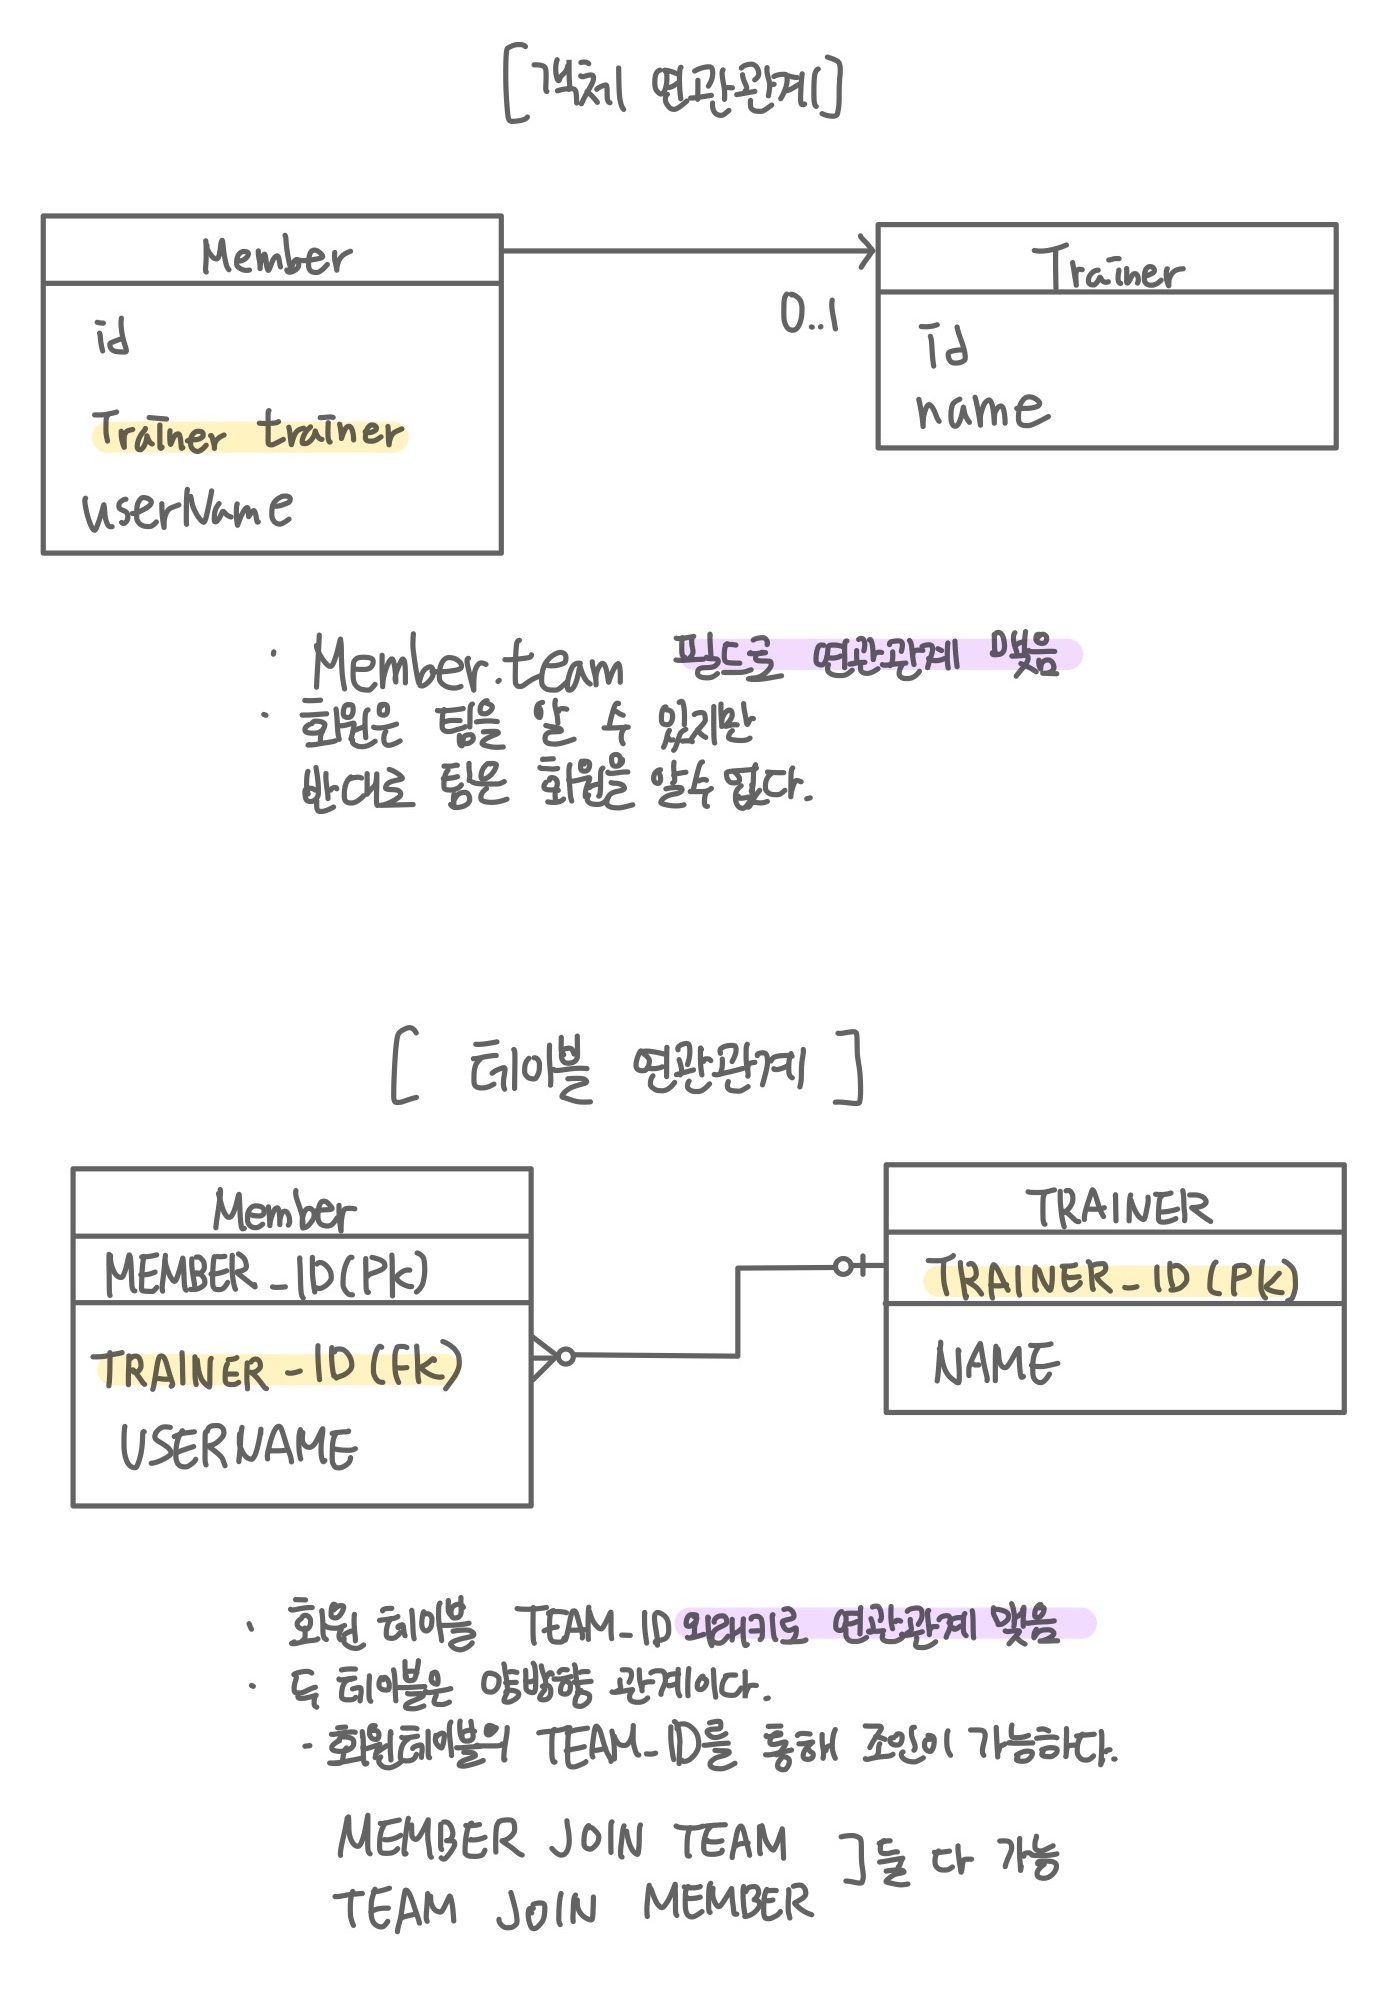 [객체 연관관계]
Member
id
Trainer trainer
userName
0..1
Trainer
id
name
· Member.team 필드로 연관관계 맺음
· 회원은 팀을 알 수 있지만
반대로 팀은 회원을 알수 없다.
[ 테이블 연관관계 ]
Member
MEMBER_ID(PK)
TRAINER_ID(FK)
USERNAME
TRAINER
TRAINER_ID(PK)
NAME
· 회원 테이블 TEAM_ID 외래키로 연관관계 맺음
· 두 테이블은 양방향 관계이다.
- 회원테이블의 TEAM_ID를 통해 조인이 가능하다.
MEMBER JOIN TEAM
TEAM JOIN MEMBER
] 둘 다 가능